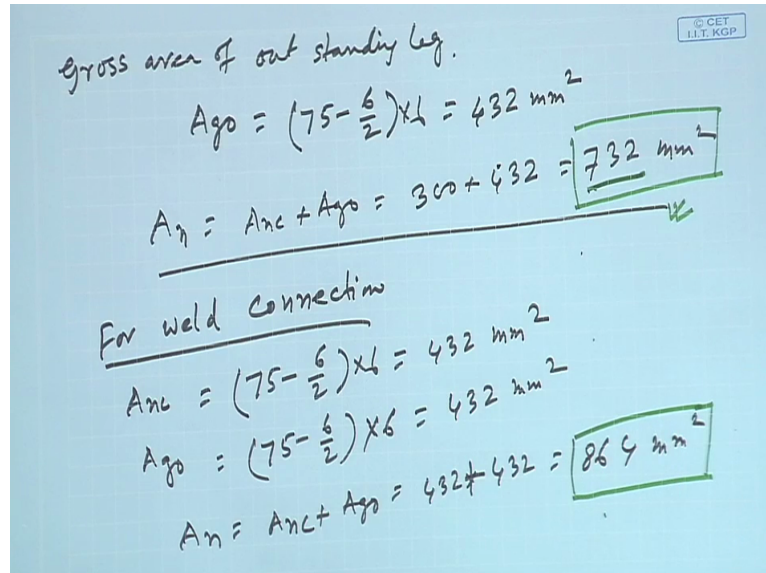 © CET
I.I.T. KGP
Gross area of out standing leg.
Ago = (75 - 6/2)×6 = 432 mm²
An = Anc + Ago = 300 + 432 = 732 mm²
For weld connection
Anc = (75 - 6/2)×6 = 432 mm²
Ago = (75 - 6/2)×6 = 432 mm²
An = Anc + Ago = 432 + 432 = 864 mm²